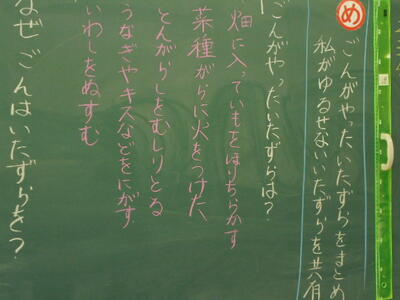 め
ごんがやったいたずらをまとめ
私がゆるせないいたずらを共有
ごんがやったいたずらは?
畑に入っていもをほりちらかす
菜種がらに火をつけた
とんがらしをむしりとる
うなぎやキスなどをにがす
いわしをぬすむ
なぜごんはいたずらを?